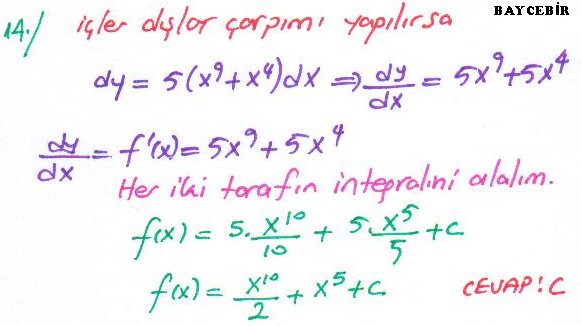 BAYCEBİR
14./ içler dışlar çarpımı yapılırsa
dy = 5(x⁹+x⁴)dx ⇒ dy/dx = 5x⁹+5x⁴
dy/dx = f'(x) = 5x⁹+5x⁴
Her iki tarafın integralini alalım.
f(x) = 5.x¹⁰/10 + 5.x⁵/5 + c
f(x) = x¹⁰/2 + x⁵ + c CEVAP: C